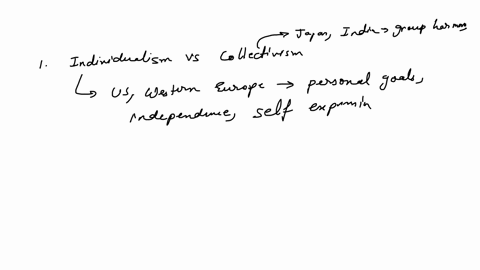 Japan, India → group harmony
1. Individualism vs Collectivism
↳ US, Western Europe → personal goals,
independence, self expression